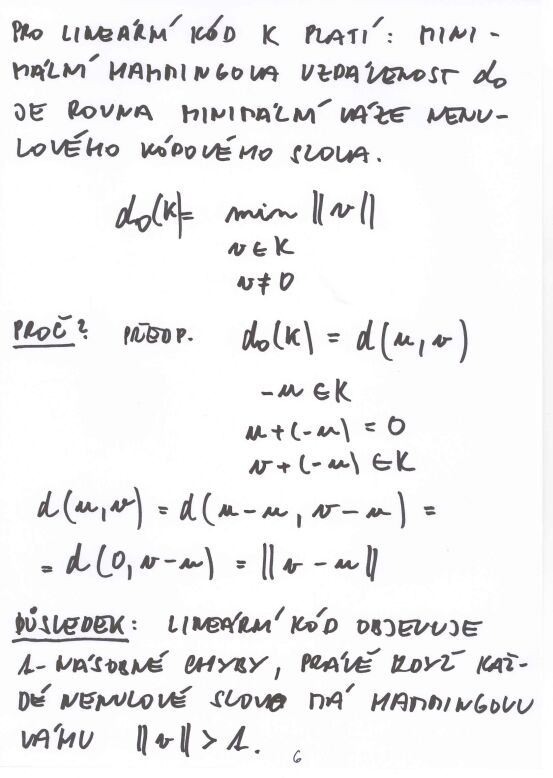 PRO LINEÁRNÍ KÓD K PLATÍ: MINI-
MÁLNÍ HAMMINGOVA VZDÁLENOST d₀
JE ROVNA MINIMÁLNÍ VÁZE NENU-
LOVÉHO KÓDOVÉHO SLOVA.
d₀(K) = min ||v||
v ∈ K
v ≠ 0
PROČ? PŘEDP. d₀(K) = d(u,v)
-u ∈ K
u+(-u) = 0
v+(-u) ∈ K
d(u,v) = d(u-u, v-u) =
= d(0, v-u) = ||v-u||
DŮSLEDEK: LINEÁRNÍ KÓD OBJEVUJE
1-NÁSOBNÉ CHYBY, PRÁVĚ KDYŽ KAŽ-
DÉ NENULOVÉ SLOVO MÁ HAMMINGOVU
VÁHU ||v|| > 1.
6